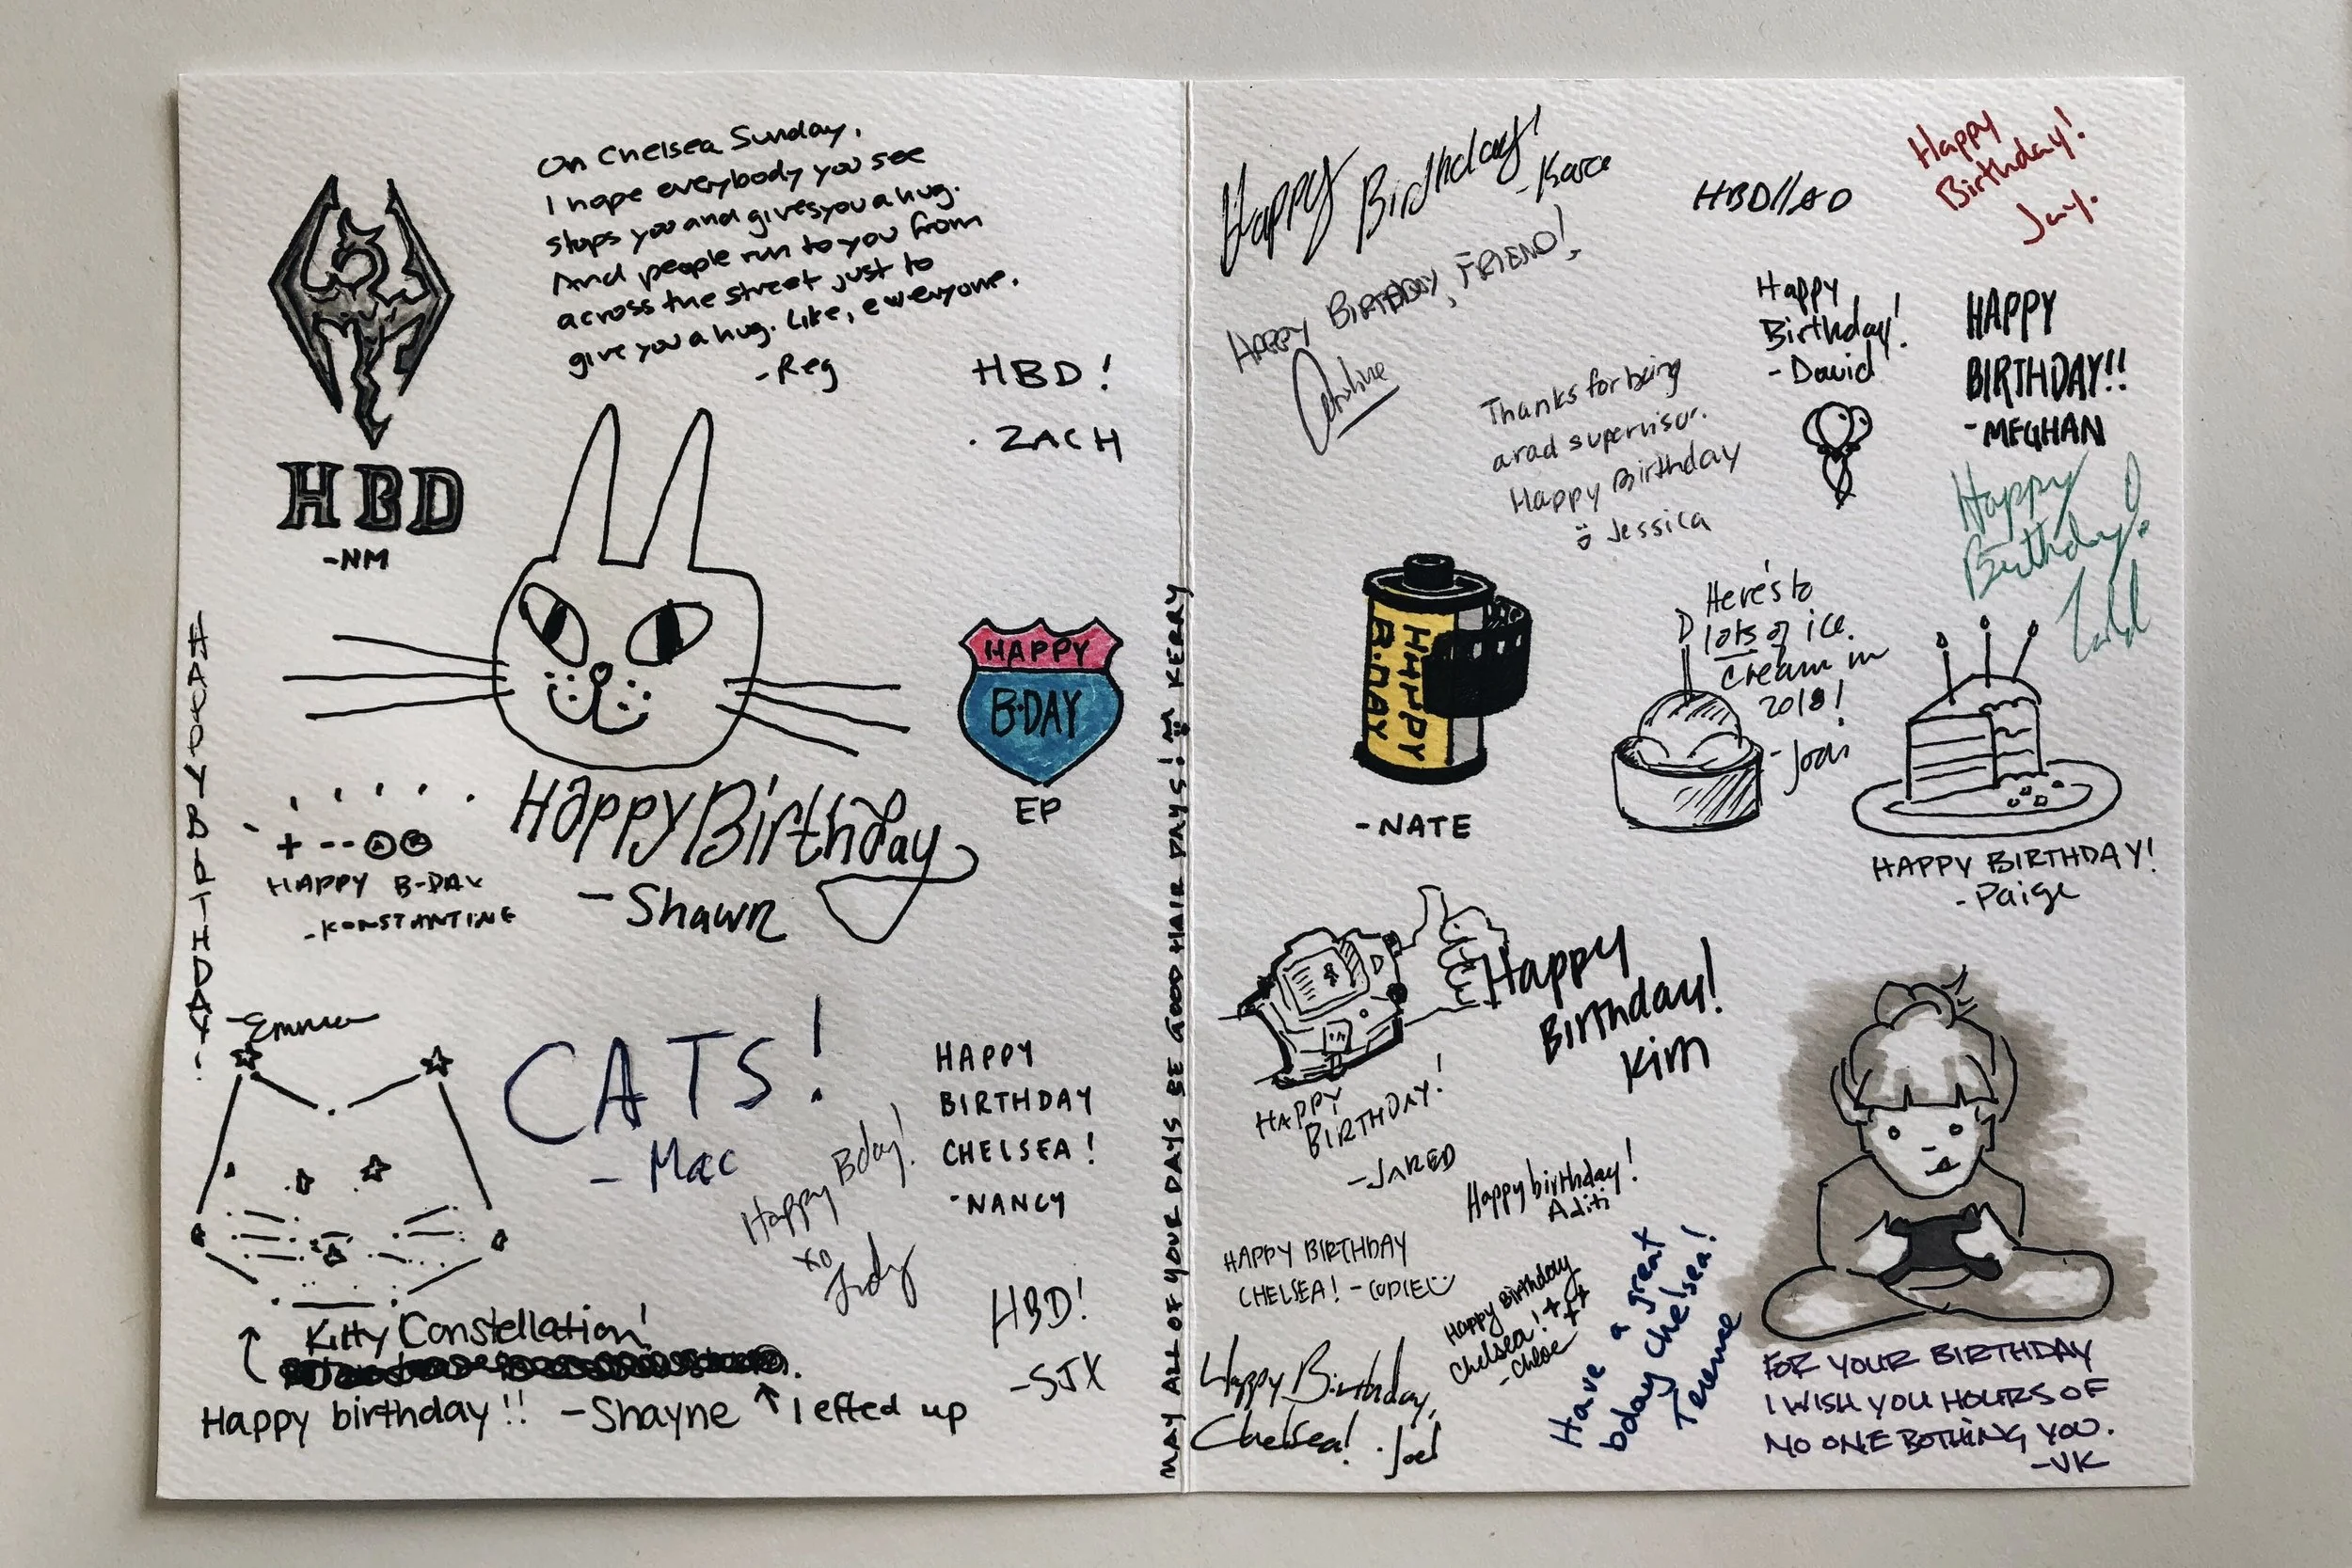 On Chelsea Sunday,
I hope everybody you see
stops you and gives you a hug.
And people run to you from
across the street just to
give you a hug. Like, everyone.
-Reg
HBD
-NM
HBD!
ZACH
HAPPY
B·DAY
EP
Happy Birthday
-Shawn
HAPPY BIRTHDAY!
-Emma
+ -- A B
HAPPY B-DAY
-KONSTANTINE
CATS!
- Mac
HAPPY
BIRTHDAY
CHELSEA!
-NANCY
Happy Bday!
xo
Judy
HBD!
-SJX
Kitty Constellation!
Happy birthday!! -Shayne ↑ I effed up
MAY ALL OF YOUR DAYS BE GOOD HAIR DAYS! KERRY
Happy Birthday!
-Kara
HAPPY BIRTHDAY, FRIEND!
Christine
HBD//AD
Happy
Birthday!
Jay.
Happy
Birthday!
-David
HAPPY
BIRTHDAY!!
-MEGHAN
Thanks for being
a rad supervisor.
Happy Birthday
Jessica
Happy
Birthday!
HAPPY
B·DAY
-NATE
Here's to
lots of ice
cream in
2018!
HAPPY BIRTHDAY!
-Paige
Happy
Birthday!
Kim
HAPPY
BIRTHDAY!
-JARED
Happy birthday!
Aditi
HAPPY BIRTHDAY
CHELSEA! -CODIE
Happy Birthday
Chelsea!
-Chloe
Have a great
bday Chelsea!
Terence
Happy Birthday,
Chelsea! ·Joel
FOR YOUR BIRTHDAY
I WISH YOU HOURS OF
NO ONE BOTHING YOU.
-VK